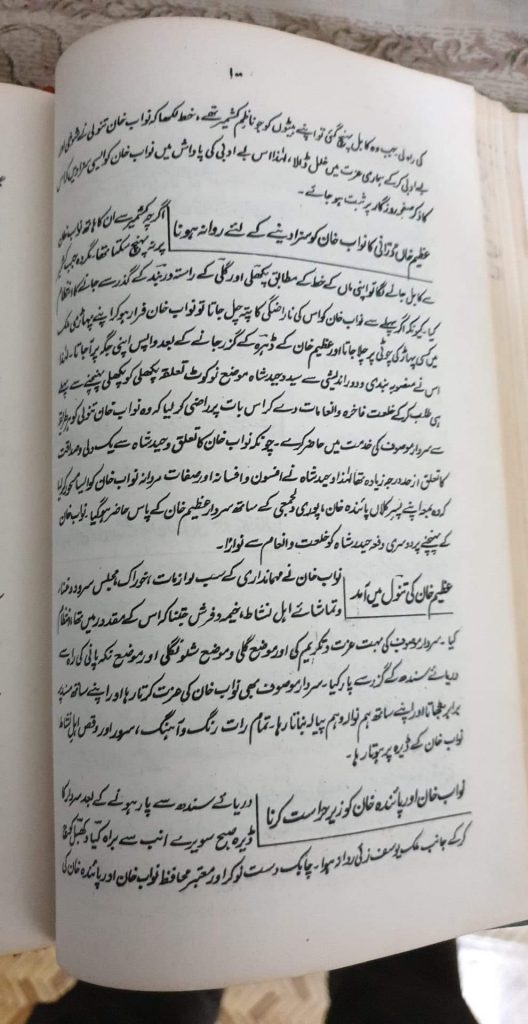 ۱۰۰
کی راہ لی۔ جب وہ کابل پہنچ گئی تو اپنے بیٹوں کو جو ناظم کشمیر تھے، خط لکھا کہ نواب خان تنولی نے شوخی اور
بے ادبی کر کے ہماری عزت میں خلل ڈالا، لہٰذا اس بے ادبی کی پاداش میں نواب خان کو ایسی سزا دیں کہ اس
کا ذکر صفحۂ روزگار پر ثبت ہو جائے۔
عظیم خاں دُرّانی کا نواب خان کو سزا دینے کے لئے روانہ ہونا
اگرچہ کشمیر سے ان کا ہاتھ نواب خان
پر نہ پہنچ سکتا تھا، مگر وہ جب کشمیر
سے کابل جانے لگا تو اپنی ماں کے خط کے مطابق پکھلی اور گلی کے راستہ دربند کے گذر سے جانے کا انتظام
کیا، کیونکہ اگر پہلے سے نواب خان کو اس کی ناراضگی کا پتہ چل جاتا تو نواب خان فرار ہو کر اپنے پہاڑی ملک
میں کسی پہاڑ کی چوٹی پر چلا جاتا اور عظیم خان کے ڈیرہ کے گزر جانے کے بعد واپس اپنی جگہ پر آ جاتا۔ لہٰذا
اس نے منصوبہ بندی و دور اندیشی سے سید وحید شاہ موضع نوکوٹ تعلقہ پکھلی کو پکھلی پہنچنے سے پہلے
ہی طلب کر کے خلعت فاخرہ و انعامات دے کر اس بات پر راضی کر لیا کہ وہ نواب خان تنولی کو ہر طریقہ
سے سردار موصوف کی خدمت میں حاضر کرے۔ چونکہ نواب خان کا تعلق وحید شاہ سے یک دلی و صداقت
کا تعلق از حد درجہ زیادہ تھا لہٰذا وحید شاہ نے افسون و افسانہ اور صفات مردانہ نواب خان کو ایسا مسحور کر لیا
کہ وہ بمعہ اپنے پسر کلاں پائندہ خان، پوری دلجمعی کے ساتھ سردار عظیم خان کے پاس حاضر ہو گیا۔ نواب خان
کے پہنچنے پر دوسری دفعہ وحید شاہ کو خلعت و انعام سے نوازا۔
عظیم خان کی تنول میں آمد
نواب خان نے مہمانداری کے سب لوازمات، خوراک، مجلس سرود و غنا،
و تماشائے اہل نشاط، خیمہ و فرش جتنا کہ اس کے مقدور میں تھا، انتظام
کیا۔ سردار موصوف کی بہت عزت و تکریم کی اور موضع گلی و موضع شلونگلی اور موضع نکہ پانی کی راہ سے
دریائے سندھ کے گزر سے پار کیا۔ سردار موصوف بھی نواب خان کی عزت کرتا رہا اور اپنے ساتھ مسند پر
برابر بٹھاتا اور اپنے ساتھ ہم نوالہ و ہم پیالہ بناتا رہا۔ تمام رات رنگ و آہنگ، سرود اور رقص اہل نشاط
نواب خان کے ڈیرہ پر ہوتا رہا۔
نواب خان اور پائندہ خان کو زیر حراست کرنا
دریائے سندھ سے پار ہونے کے بعد سردار کا
ڈیرہ صبح سویرے انب سے براہ گیا و کھبل کوچ
کر کے جانب ملک یوسف زئی روانہ ہوا۔ چابک دست نوکر اور معتبر محافظ نواب خان اور پائندہ خان کی